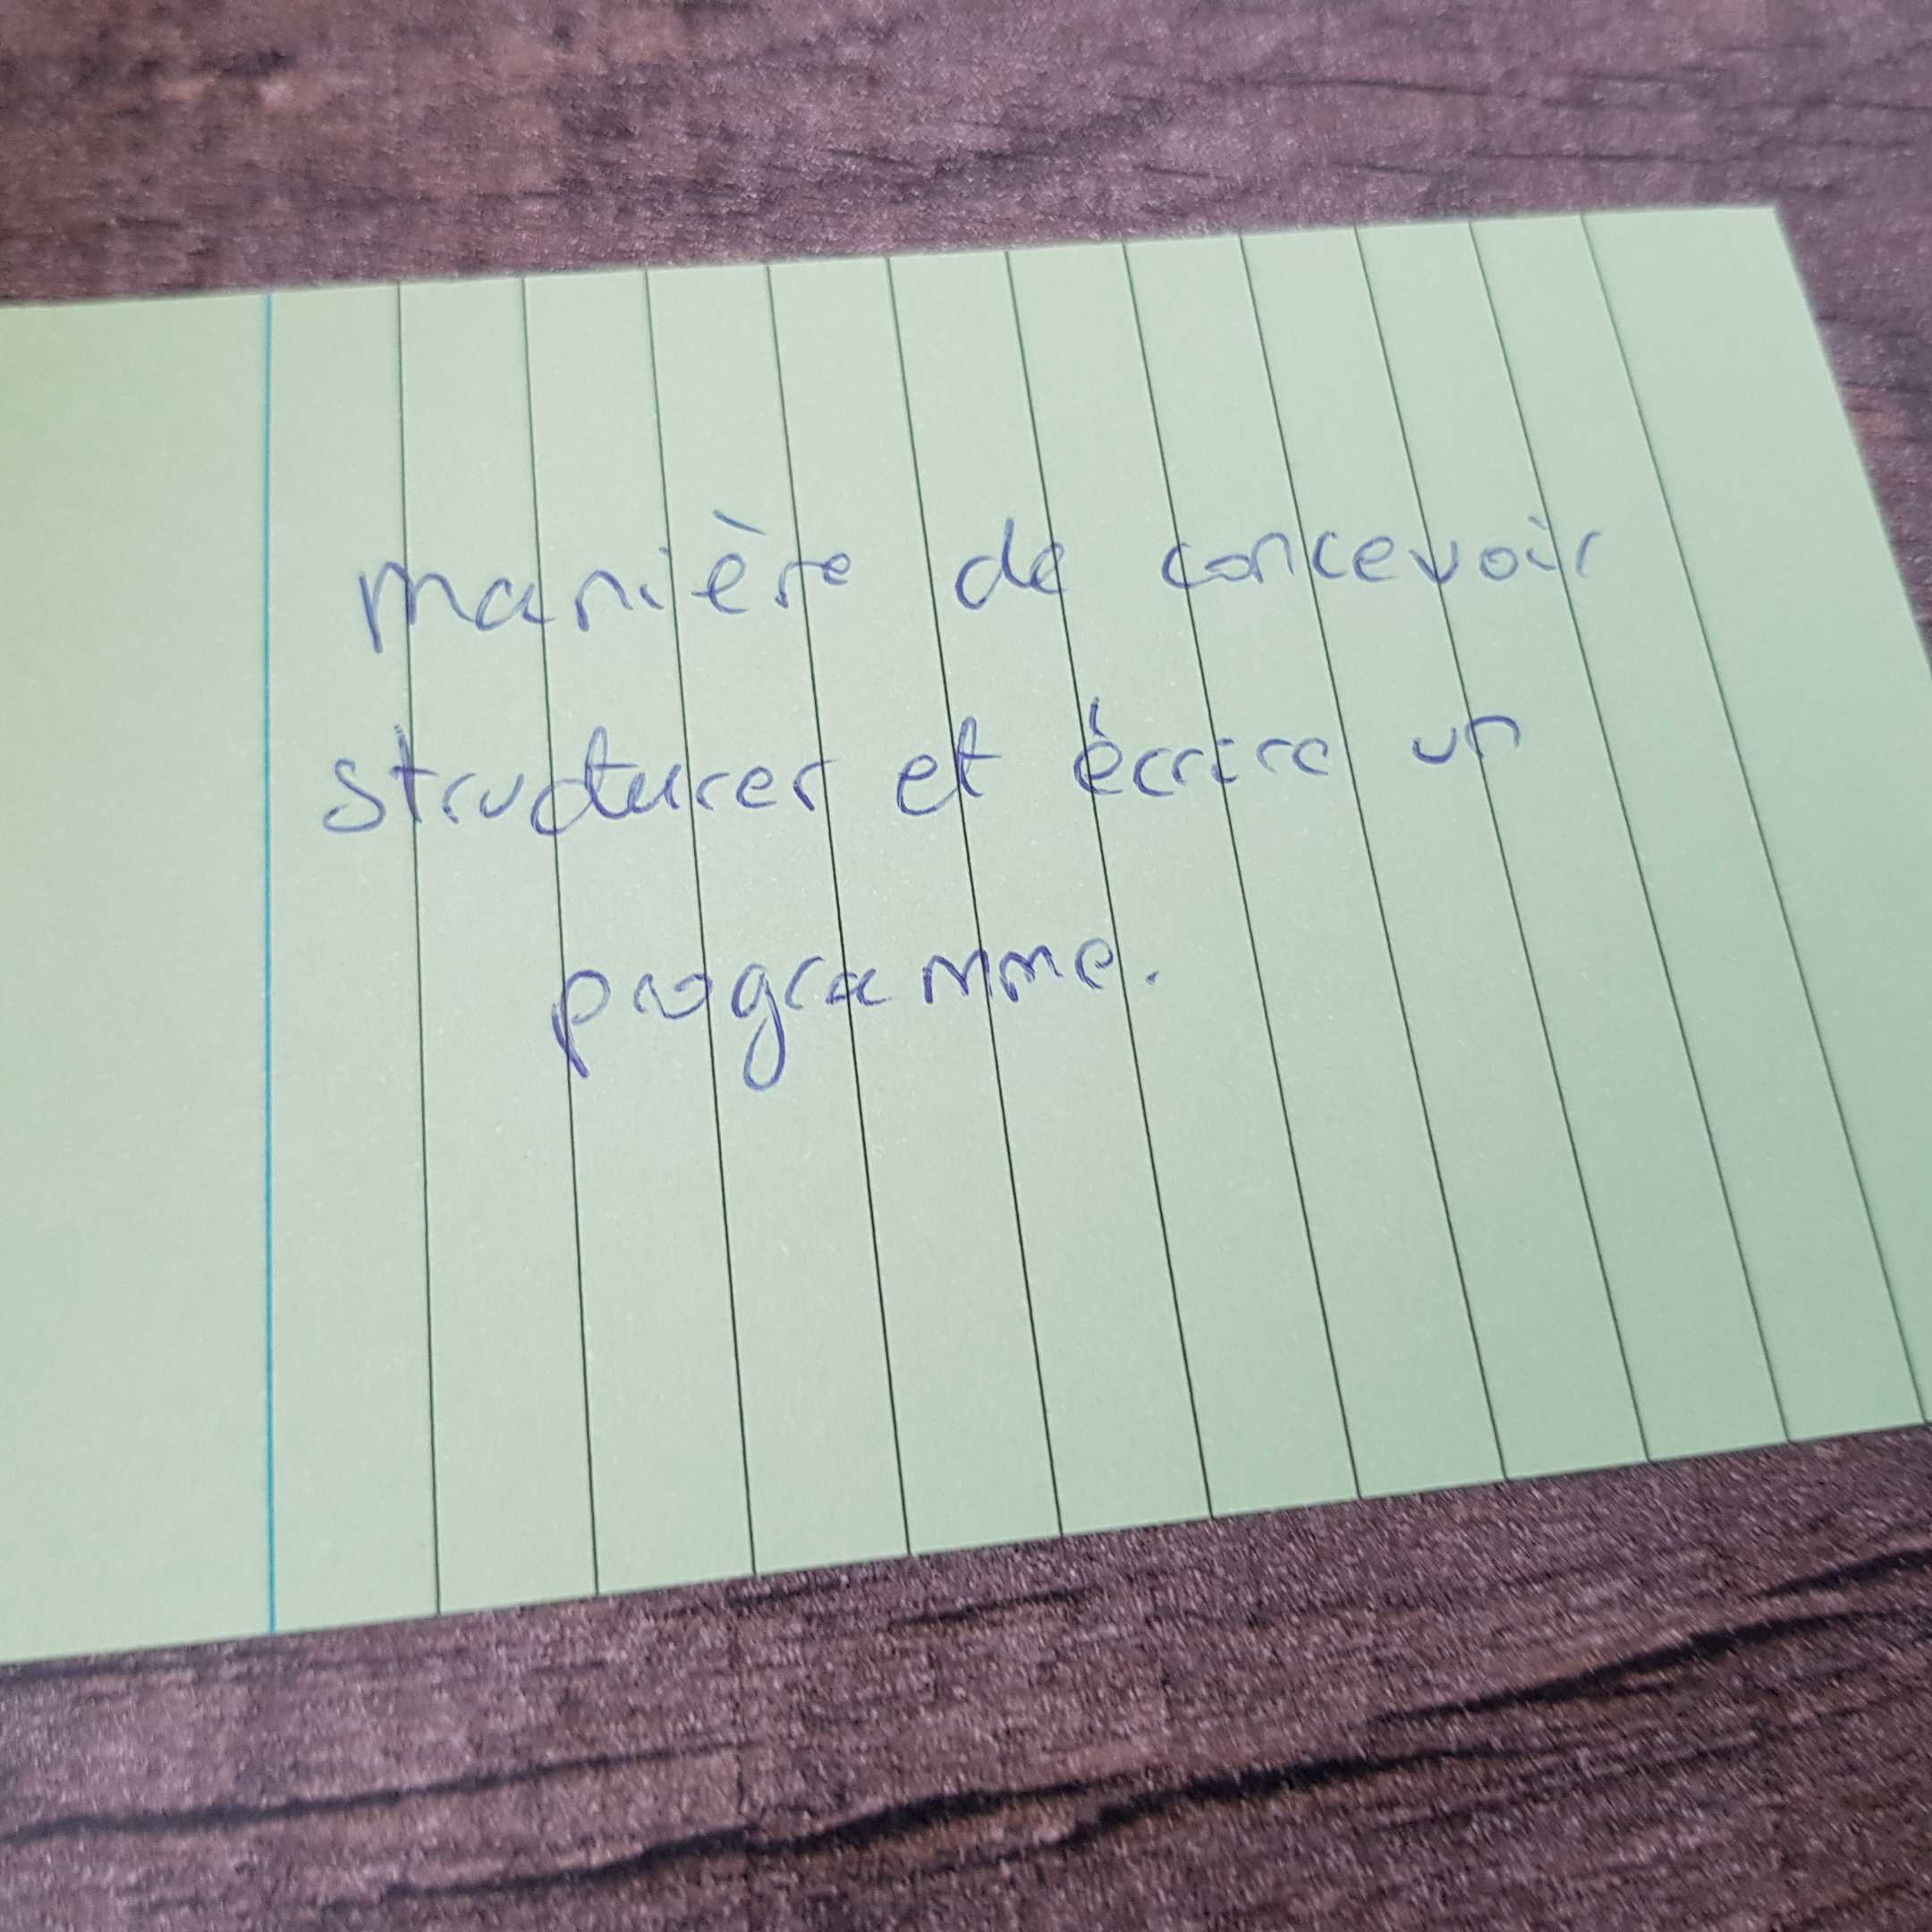 manière de concevoir
structurer et écrire un
programme.